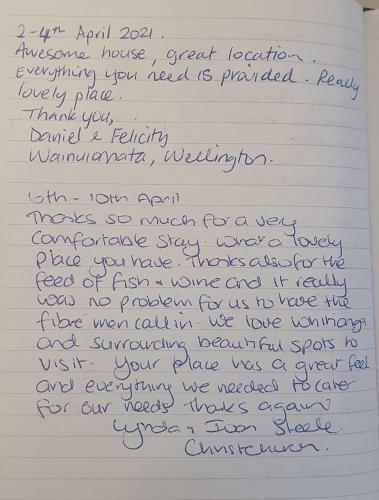 2-4th April 2021.
Awesome house, great location.
Everything you need is provided. Really
lovely place.
Thank you,
Daniel & Felicity
Wainuiomata, Wellington.
6th - 10th April
Thanks so much for a very
comfortable stay. What a lovely
place you have. Thanks also for the
feed of fish & wine and it really
was no problem for us to have the
fibre men call in. We love Whitianga
and surrounding beautiful spots to
visit. Your place has a great feel
and everything we needed to cater
for our needs Thanks again
Lynda & Ivon Steele.
Christchurch.